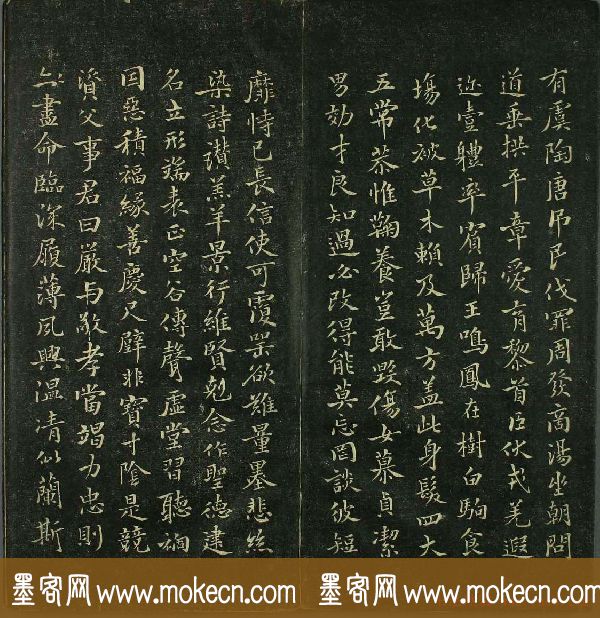 有虞陶唐吊民伐罪周發商湯坐朝問
道垂拱平章愛育黎首臣伏戎羌遐
迩壹軆率賓歸王鳴鳳在樹白駒食
場化被草木賴及萬方盖此身髮四大
五常恭惟鞠養豈敢毀傷女慕貞潔
男効才良知過必改得能莫忘罔談彼短
靡恃己長信使可覆器欲難量墨悲絲
染詩讃羔羊景行維賢剋念作聖德建
名立形端表正空谷傳聲虛堂習聽禍
因惡積福緣善慶尺璧非寶寸陰是競
資父事君曰嚴与敬孝當竭力忠則
盡命臨深履薄夙興温凊似蘭斯
墨客网 www.mokecn.com
墨客网 www.mokecn.com